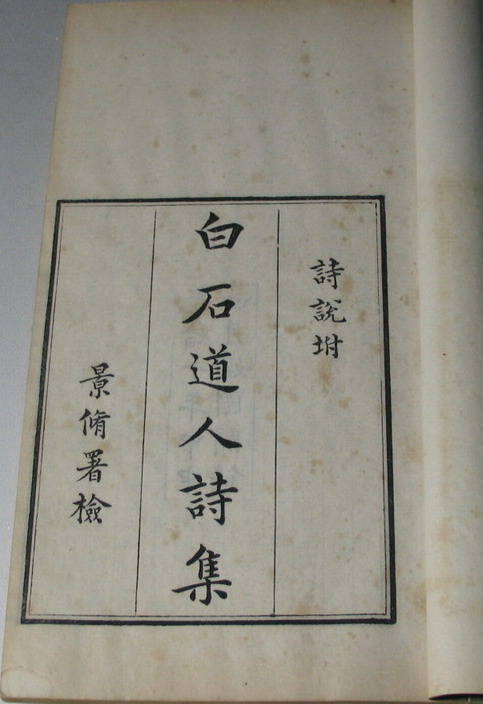 詩說坿
白石道人詩集
景脩署檢